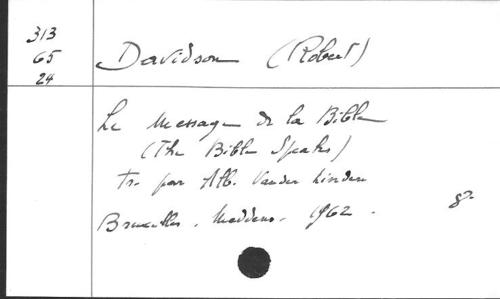 313
65
24
Davidson (Robert)
Le Message de la Bible
(The Bible Speaks)
tr. par Alb. Vander Linden
Bruxelles. Meddens. 1962. 8°